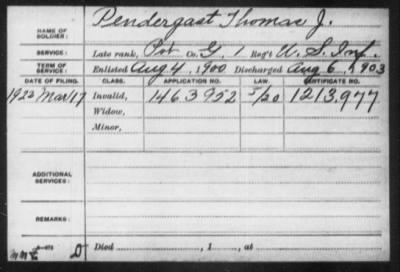 NAME OF SOLDIER: Pendergast Thomas J.
SERVICE: Late rank, Pvt Co. G, 1 Reg't U. S. Inf.
TERM OF SERVICE: Enlisted Aug 4, 1900 Discharged Aug 6, 1903
DATE OF FILING. CLASS. APPLICATION NO. LAW. CERTIFICATE NO.
1922 Mar 17 Invalid, 1463952 5/20 1213,977
Widow,
Minor,
ADDITIONAL SERVICES:
REMARKS:
D Died , 1 , at